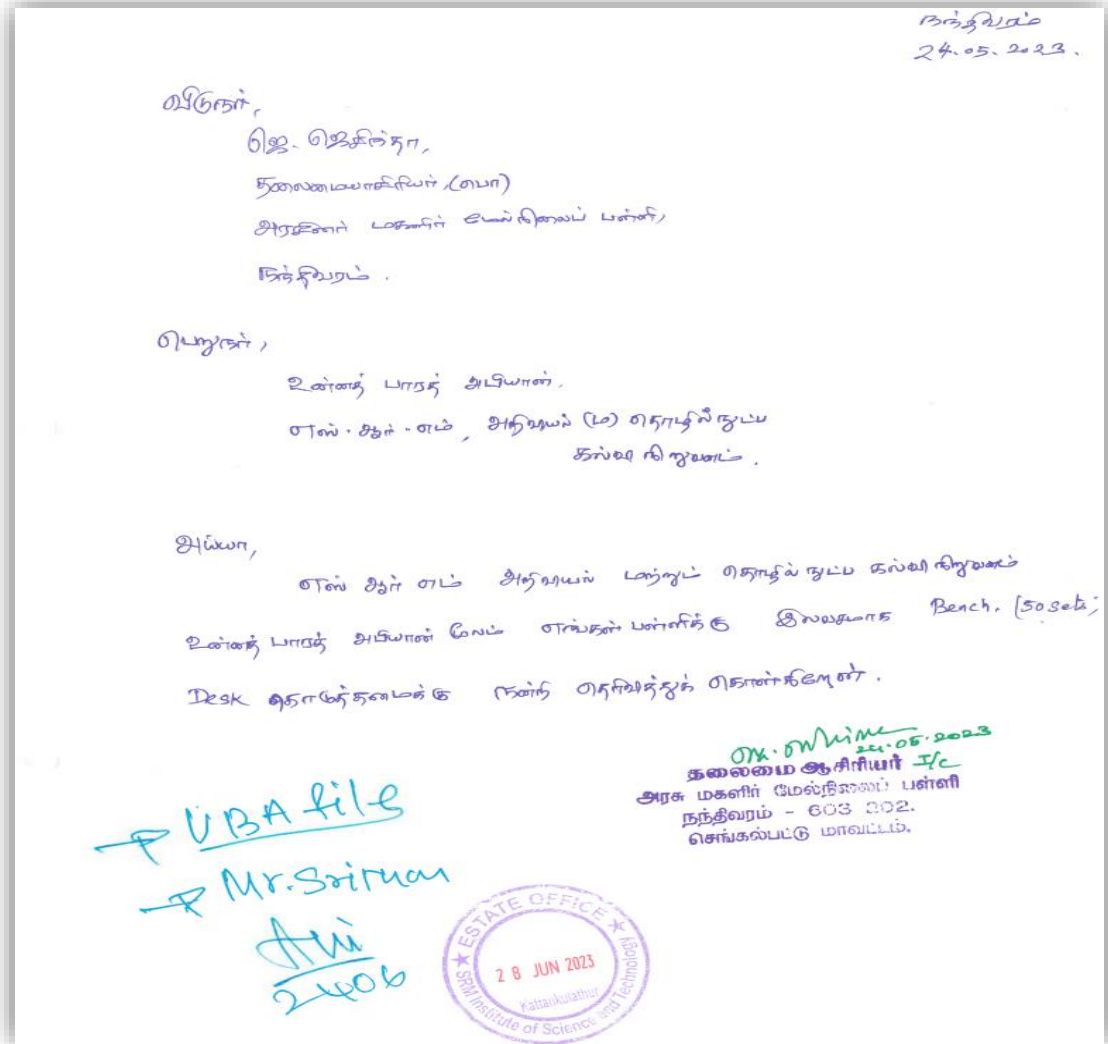 நந்திவரம்
24.05.2023.
விடுநர்,
ஜெ. ஜெசிந்தா,
தலைமையாசிரியர், (பொ)
அரசினர் மகளிர் மேல்நிலைப் பள்ளி,
நந்திவரம்.
பெறுநர்,
உன்னத் பாரத் அபியான்.
எஸ்.ஆர்.எம், அறிவியல் (ம) தொழில் நுட்ப
கல்வி நிறுவனம்.
அய்யா,
எஸ் ஆர் எம் அறிவியல் மற்றும் தொழில் நுட்ப கல்வி நிறுவனம்
உன்னத் பாரத் அபியான் மூலம் எங்கள் பள்ளிக்கு இலவசமாக Bench, (50 sets)
Desk கொடுத்தமைக்கு நன்றி தெரிவித்துக் கொள்கிறேன்.
24.05.2023
தலைமை ஆசிரியர் I/c
அரசு மகளிர் மேல்நிலைப் பள்ளி
நந்திவரம் - 603 202.
செங்கல்பட்டு மாவட்டம்.
→ UBA file
→ Mr.
2406
★ ESTATE OFFICE ★
28 JUN 2023
Kattankulathur
SRM Institute of Science and Technology